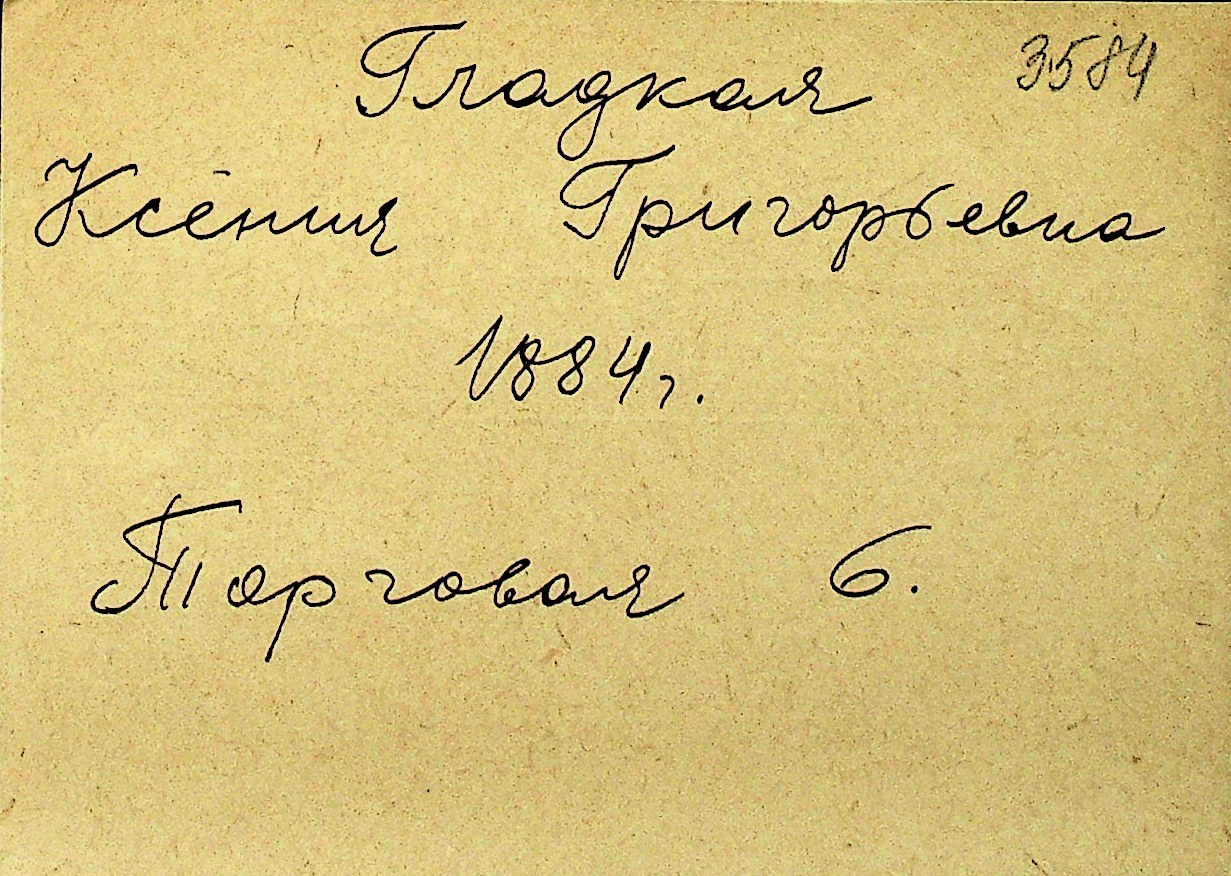 3584
Гладкая
Ксёния Григорьевна
1884 г.
Торговая 6.